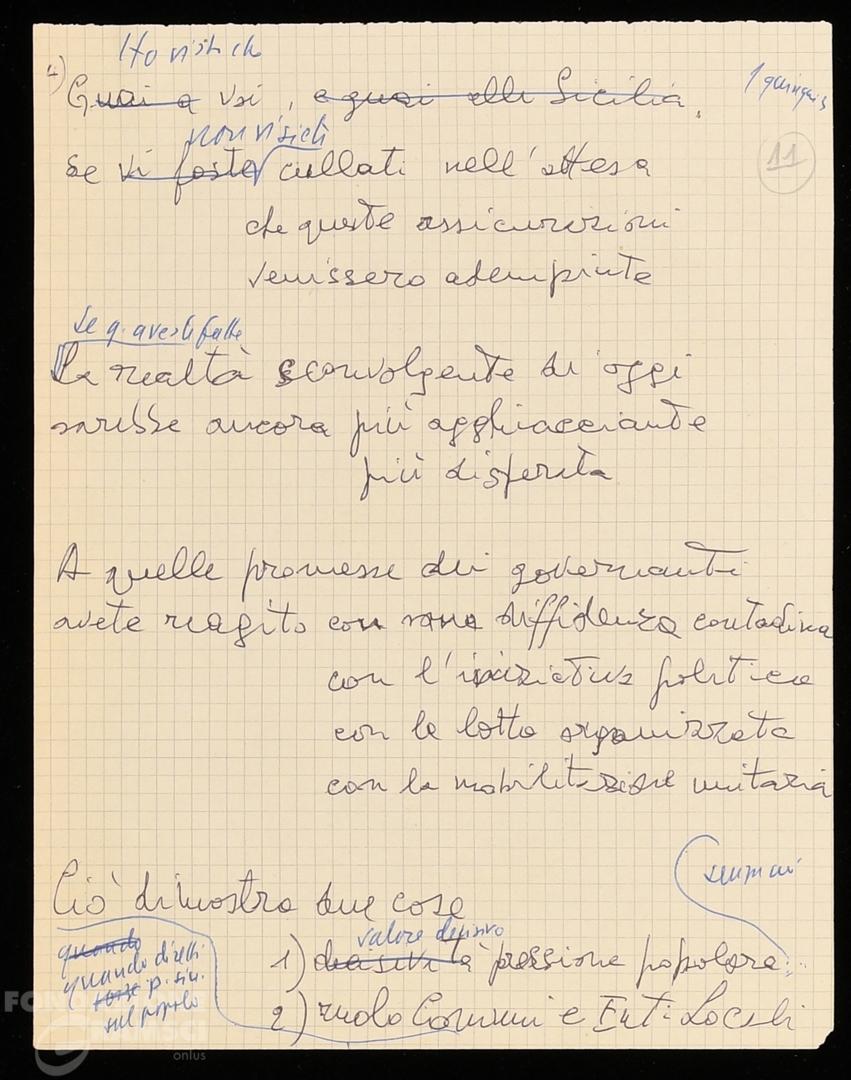 Guai a voi, e guai alla Sicilia,
11
non vi siete
se vi foste cullati nell'attesa
che queste assicurazioni
venissero adempiute
se q. aveste fatto
La realtà sconvolgente di oggi
sarebbe ancora più agghiacciante
più disperata
A quelle promesse dei governanti
avete reagito con sana diffidenza contadina
con l'iniziativa politica
con la lotta organizzata
con la mobilitazione unitaria
Ciò dimostra due cose
valore decisivo
1) decisività pressione popolare
quando
quando
sul popolo
2) ruolo Comuni e Enti Locali
FONDAZIONE
GRAMSCI
onlus